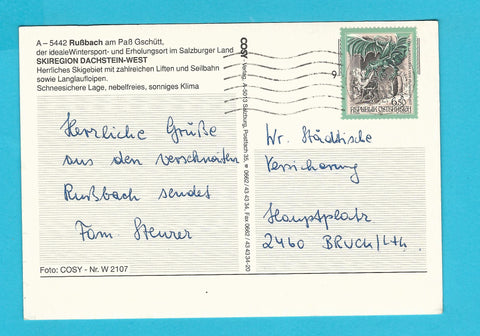 A – 5442 Rußbach am Paß Gschütt,
der idealeWintersport- und Erholungsort im Salzburger Land
SKIREGION DACHSTEIN-WEST
Herrliches Skigebiet mit zahlreichen Liften und Seilbahn
sowie Langlaufloipen.
Schneesichere Lage, nebelfreies, sonniges Klima
Herzliche Grüße
aus den verschneiten
Rußbach sendet
Fam. Steurer
Foto: COSY - Nr. W 2107
COSY - Verlag, A-5013 Salzburg, Postfach 35, ☎ 0662 / 43 43 34, Fax 0662 / 43 43 34-20
9
6.50
REPUBLIK ÖSTERREICH
Wr. Städtische
Versicherung
Hauptplatz
2460 BRUCK/Lth.